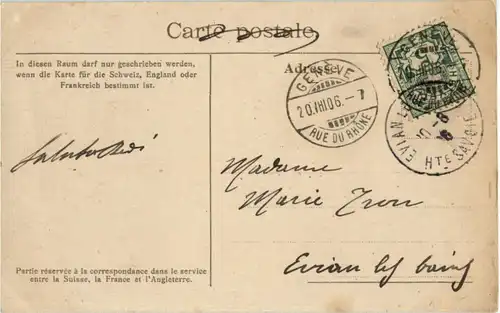 Carte postale
In diesen Raum darf nur geschrieben werden,
wenn die Karte für die Schweiz, England oder
Frankreich bestimmt ist.
Adresse
GENÈVE
20.III06.-7
RUE DU RHÔNE
EVIAN
HTE SAVOIE
Madame
Marie
Evian les bains
Partie réservée à la correspondance dans le service
entre la Suisse, la France et l'Angleterre.